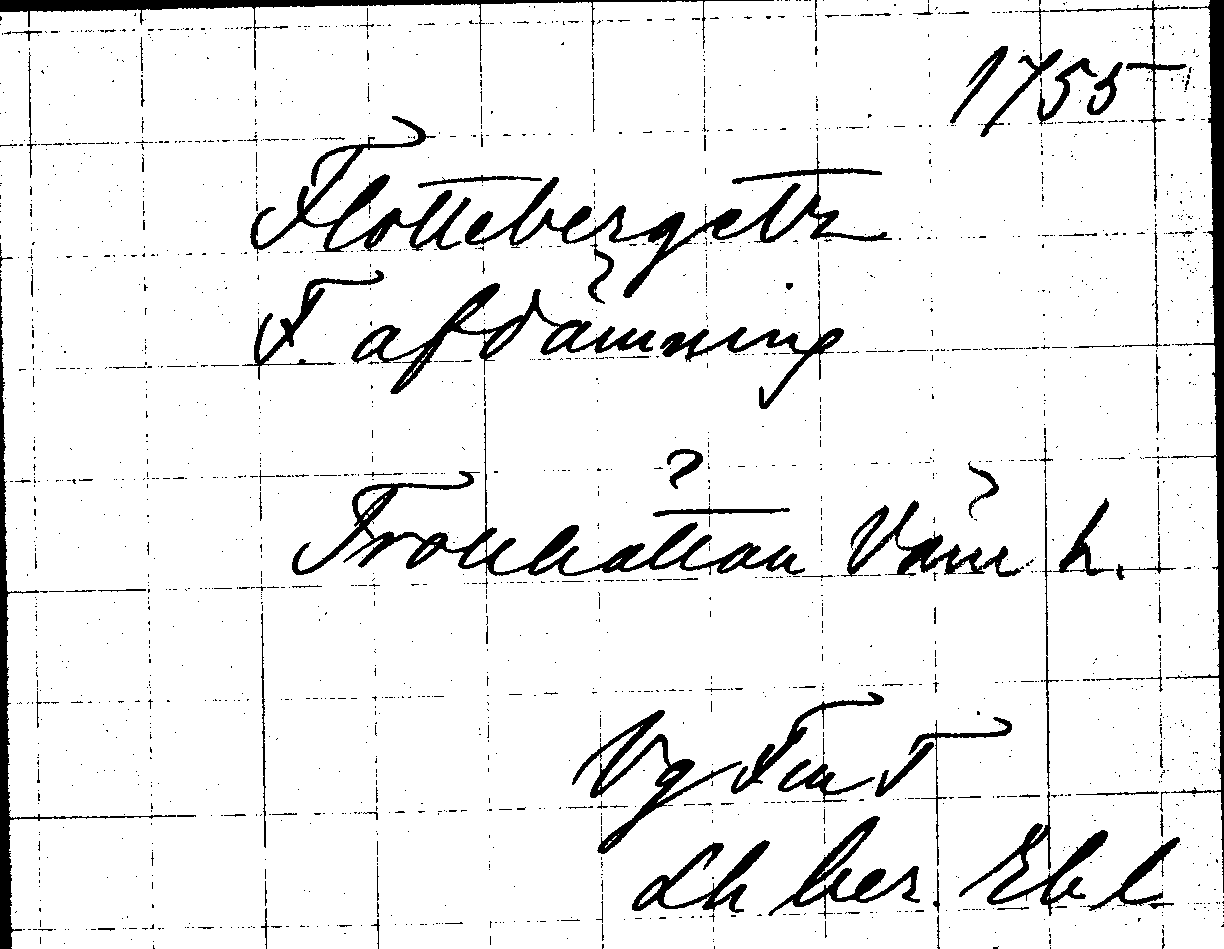 1755
Flottebergetz
F. afdämning
Trollhättan Väne h.
Vg Fm T
Lh ber. Ebl.